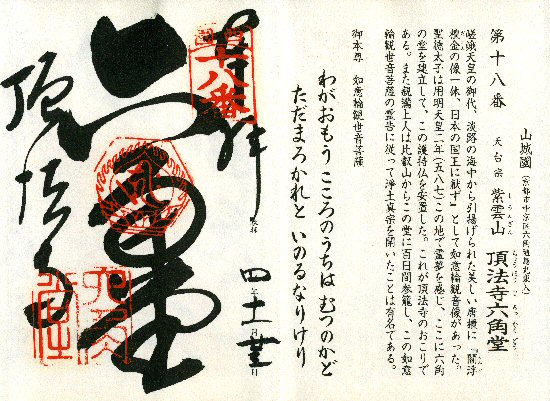 第十八番
山城國(京都市中京区六角通烏丸東入)
天台宗 紫雲山 頂法寺六角堂
しうんざん ちょうほうじろっかくどう
嵯峨天皇の御代、淡路の海中から引揚げられた美しい唐櫃に「閻浮
檀金の像一体、日本の国王に献ず」として如意輪観音像があった。
聖徳太子は用明天皇二年(五八七)この地で霊夢を感じ、ここに六角
の堂を建立して、この護持仏を安置した。これが頂法寺のおこりで
ある。また親鸞上人は比叡山からこの堂に百日間参籠し、この如意
輪観世音菩薩の霊告に従って浄土真宗を開いたことは有名である。
御本尊 如意輪観世音菩薩
わがおもう こころのうちは むつのかど
ただまろかれと いのるなりけり
奉拝
十八番
六角堂
頂法寺